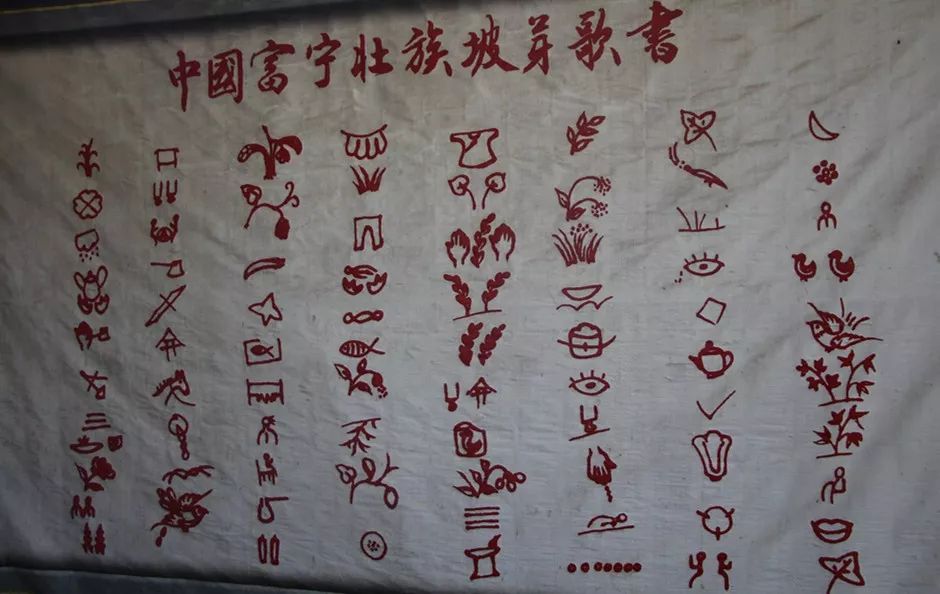 中國富宁壮族坡芽歌書